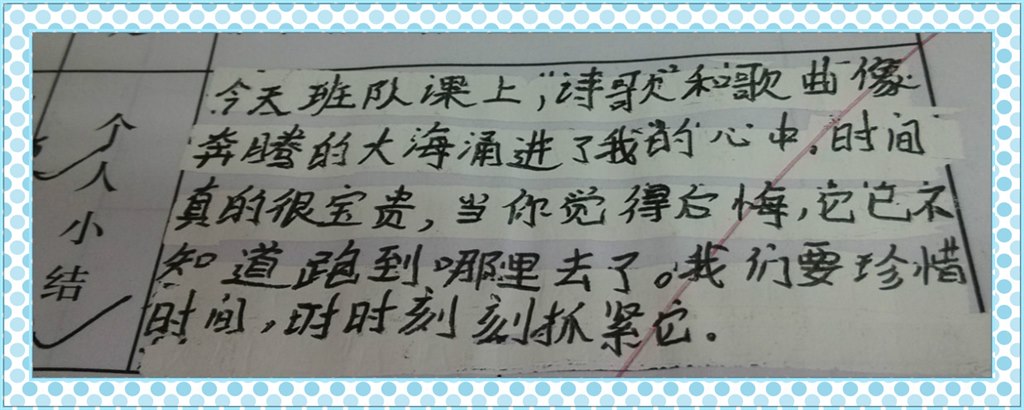 个人小结
今天班队课上,"诗歌"和歌曲像
奔腾的大海涌进了我的心中。时间
真的很宝贵,当你觉得后悔,它已不
知道跑到哪里去了。我们要珍惜
时间,时时刻刻抓紧它。